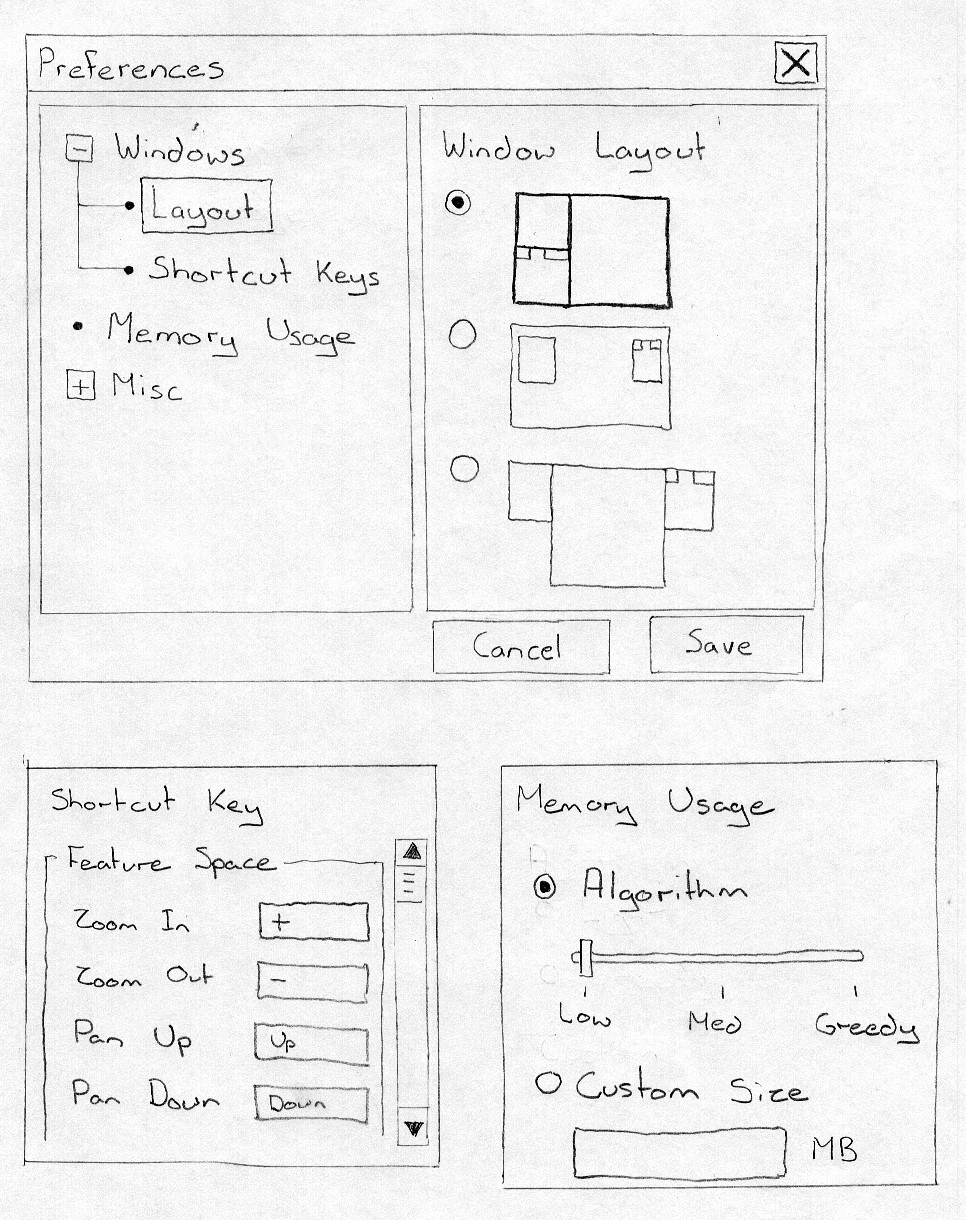 Preferences
Windows
Layout
Shortcut Keys
Memory Usage
Misc
Window Layout
Cancel
Save
Shortcut Key
Feature Space
Zoom In +
Zoom Out -
Pan Up Up
Pan Down Down
Memory Usage
Algorithm
Low Med Greedy
Custom Size
MB